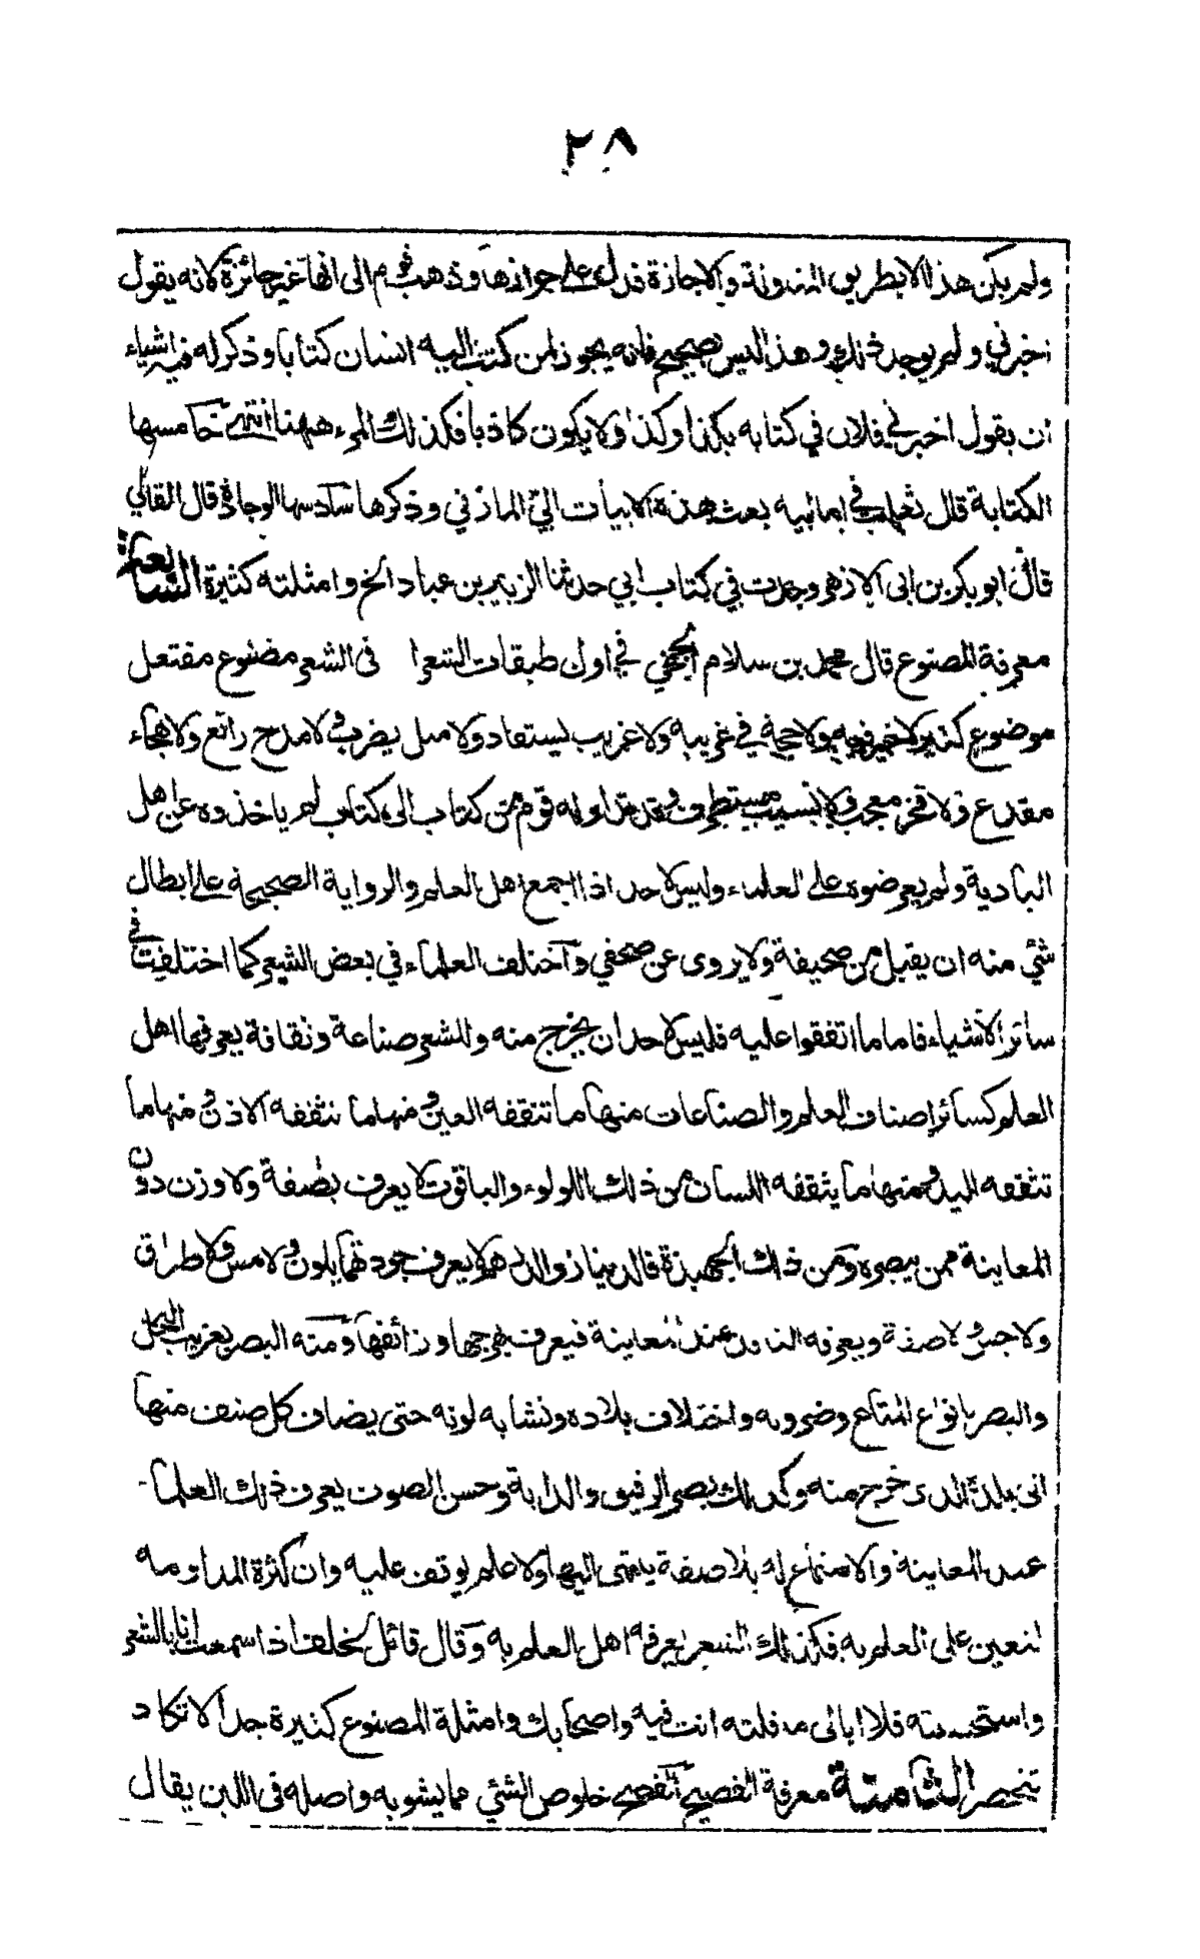 ٢٨
ولم يكن هذا الا بطريق المناولة والاجازة فدل على جوازها وذهب قوم الى انها غير جائزة لانه يقول
اخبرني ولم يوجد ذلك وهذا ليس بصحيح فانه يجوز لمن كتب اليه انسان كتابا وذكر له فيه اشياء
ان يقول اخبرني فلان في كتابه بكذا وكذا ولا يكون كاذبا فكذلك الامر ههنا انتهى خامسها
الكتابة قال ثعلب في اماليه بعث هذه الابيات اليّ المازني وذكرها سادسها الوجادة قال القالي
قال ابو بكر بن ابى الازهر وجدت في كتاب ابي حدثنا الزبير بن عباد الخ وامثلته كثيرة السابعة
معرفة المصنوع قال محمد بن سلام الجمحي في اول طبقات الشعرا فى الشعر مصنوع مفتعل
موضوع كثير لا خير فيه ولا حجة في غريبه ولا غريب يستفاد ولا مثل يضرب ولا مدح رائع ولا هجاء
مقدع ولا فخر معجب ولا نسيب مستطرف وقد تداوله قوم من كتاب الى كتاب لم ياخذوه عن اهل
البادية ولم يعرضوه على العلماء وليس لاحد اذا اجمع اهل العلم والرواية الصحيحة على ابطال
شئ منه ان يقبل من صحيفة ولا يروى عن صحفي وقد اختلف العلماء في بعض الشعر كما اختلفت في
سائر الاشياء فاما ما اتفقوا عليه فليس لاحد ان يخرج منه وللشعر صناعة وثقافة يعرفها اهل
العلم كسائر اصناف العلم والصناعات منها ما تثقفه العين ومنها ما تثقفه الاذن ومنها ما
تثقفه اليد ومنها ما يثقفه اللسان من ذلك اللولوء والياقوت لا يعرف بصفة ولا وزن دون
المعاينة ممن يبصره ومن ذلك الجهبذة فالدينار والدرهم لا يعرف جودتهما بلون ولا مس ولا طراق
ولا جس ولا صفة ويعرفه الناقد عند المعاينة فيعرف بهرجها وزائفها ومنه البصر بغريب النخل
والبصر بانواع المتاع وضروبه واختلاف بلاده وتشابه لونه حتى يضاف كل صنف منها
الى بلده الذى خرج منه وكذلك بصر الرقيق والدابة وحسن الصوت يعرف ذلك العلماء
عند المعاينة والاستماع له بلا صفة ينتهى اليها ولا علم يوقف عليه وان كثرة المداومه
لتعين على العلم به فكذلك الشعر يعرفه اهل العلم به وقال قائل لخلف اذا سمعت انا بالشعر
واستحسنته فلا ابالى ما قلته انت فيه واصحابك وامثلة المصنوع كثيرة جدا لا تكاد
تنحصر الثامنة معرفة الفصيح الفصح خلوص الشئي مما يشوبه واصله فى اللبن يقال